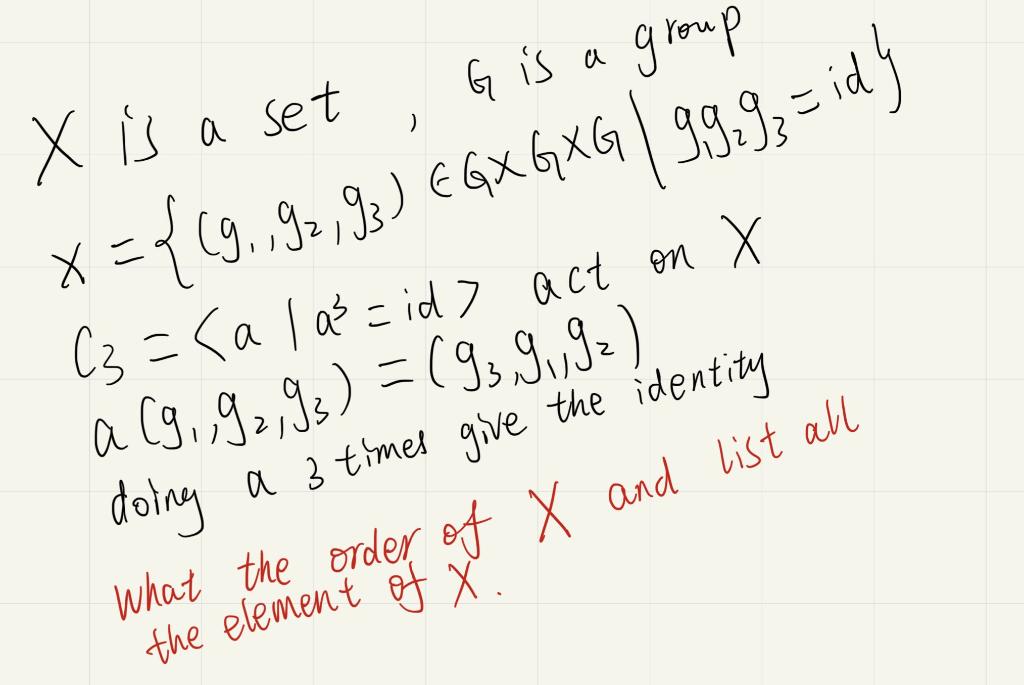 X is a set , G is a group
X = {(g₁,g₂,g₃) ∈G×G×G | g₁g₂g₃ = id}
C₃ = <a | a³ = id> act on X
a(g₁,g₂,g₃) = (g₃,g₁,g₂)
doing a 3 times give the identity
What the order of X and list all
the element of X.